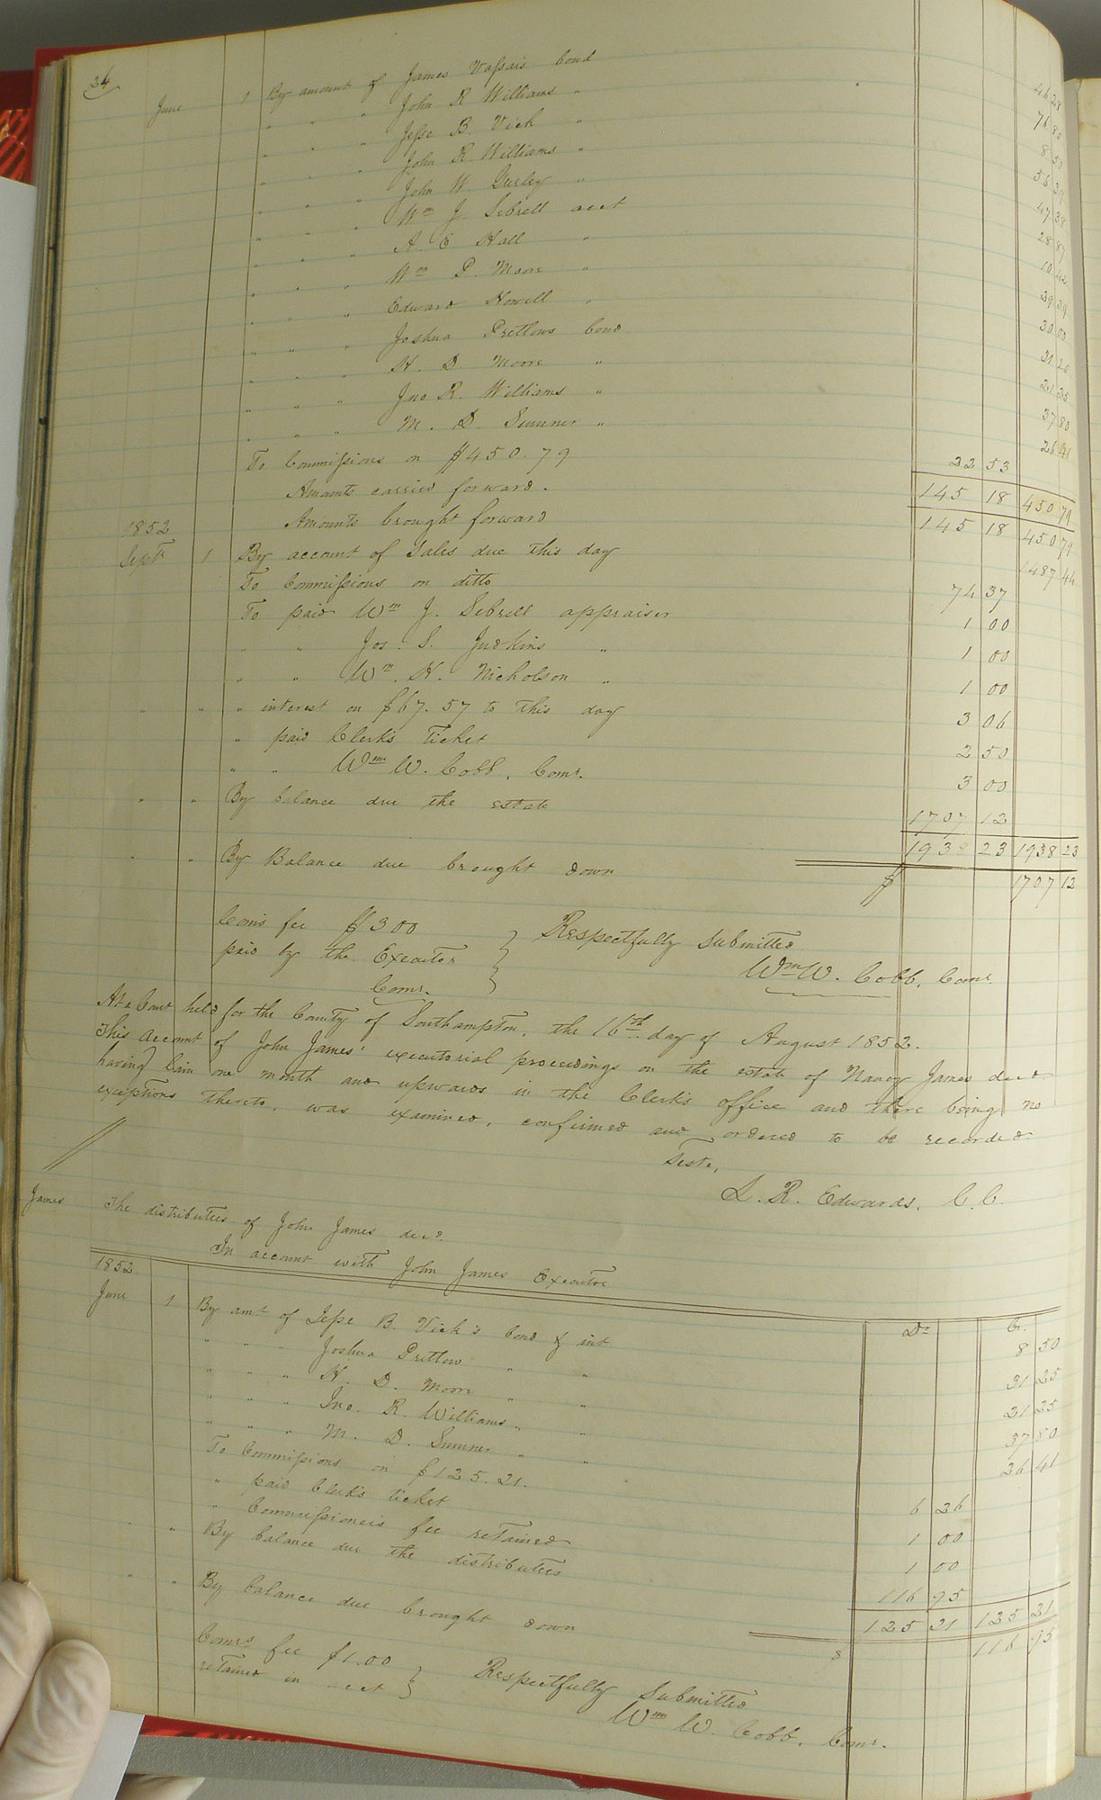 34
June 1 By amount of James Vassais bond 46 28
" " " John R Williams " 76 80
" " " Jesse B. Vick " 8 50
" " " John R Williams " 56 39
" " " John W Gurley " 47 38
" " " Wm J Sebrell acct 28 87
" " " A. E Hall " 10 42
" " " Wm P. Moore " 39 39
" " " Edward Howell " 30 00
" " " Joshua Pretlows bond 31 25
" " " H. D. Moore " 21 25
" " " Jno R. Williams " 37 80
" " " M. D. Sumner " 26 41
To Commissions on $450.79 22 53
Amounts carried forward. 145 18 450 79
1852 Amounts brought forward 145 18 450 79
Sept 1 By account of Sales due this day 1487 44
To Commissions on ditto 74 37
To paid Wm J. Sebrell appraiser 1 00
" " Jos. S. Judkins " 1 00
" " Wm. H. Nicholson " 1 00
" " " interest on $67.57 to this day 3 06
" paid Clerk's Ticket 2 50
" " Wm W. Cobb, Comr. 3 00
" " By balance due the estate 1707 12
1938 23 1938 23
" " By Balance due brought down $ 1707 12
Com's fee $3.00 } Respectfully Submitted
paid by the Executor }
Comr. } Wm W. Cobb, Comr.
At a Court held for the County of Southampton, the 16th day of August 1852.
This Account of John James' executorial proceedings on the estate of Nancy James decd
having lain one month and upwards in the Clerk's Office and there being no
exceptions thereto, was examined, confirmed and ordered to be recorded.
Teste,
L. R. Edwards, C. C.
James The distributees of John James decd.
In account with John James Executor
1852 Dr Cr.
June 1 By amt of Jesse B. Vick's bond & int 8 50
" " " Joshua Pretlow " " 31 25
" " " H. D. Moore " " 21 25
" " " Jno. R. Williams " " 37 80
" " " M. D. Sumner " " 26 41
To Commissions on $125.21. 6 26
" paid Clerk's ticket 1 00
" Commissioner's fee retained 1 00
" " By balance due the distributees 116 95
125 21 125 21
" " By balance due brought down $ 116 95
Comrs fee $1.00 } Respectfully Submitted
retained in acct } Wm W. Cobb, Comr.